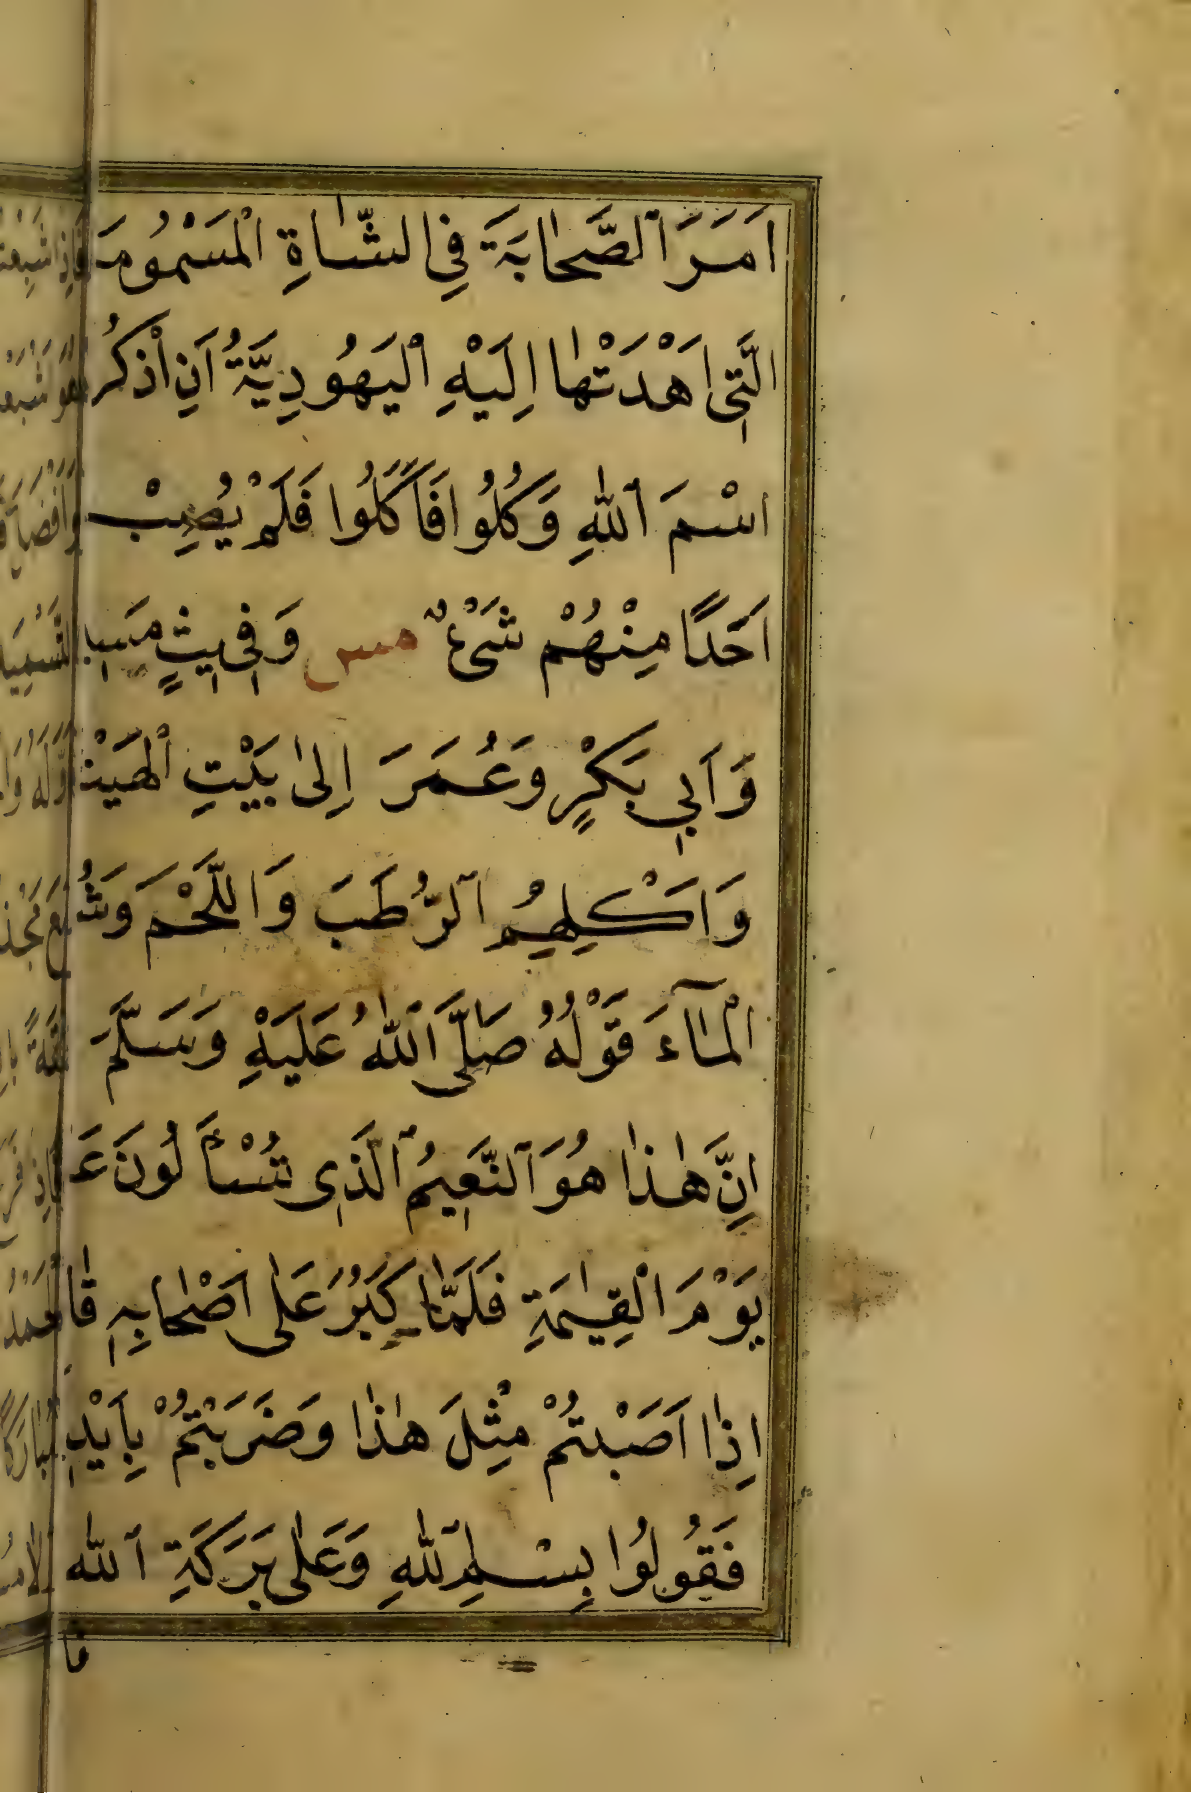 اَمَرَ الصَّحَابَةَ فِي الشَّاةِ الْمَسْمُومَ
الَّتِي اَهْدَتْهَا اِلَيْهِ الْيَهُودِيَّةُ اَنِ اذْكُرُ
اسْمَ اللهِ وَكُلُوا فَاَكَلُوا فَلَمْ يُصِبْ
اَحَدًا مِنْهُمْ شَيْءٌ مس وَفِي
وَاَبِي بَكْرٍ وَعُمَرَ اِلٰى بَيْتِ الْهَيْثَ
وَاَكْلِهِمُ الرُّطَبَ وَاللَّحْمَ وَشُ
الْمَآءَ قَوْلُهُ صَلَّى اللهُ عَلَيْهِ وَسَلَّمَ
اِنَّ هٰذَا هُوَ النَّعِيمُ الَّذِي تُسْأَلُونَ عَ
يَوْمَ الْقِيٰمَةِ فَلَمَّا كَبُرَ عَلٰى اَصْحَابِهِ قَا
اِذَا اَصَبْتُمْ مِثْلَ هٰذَا وَضَرَبْتُمْ بِاَيْدِ
فَقُولُوا بِسْمِ اللهِ وَعَلٰى بَرَكَةِ الله
فا